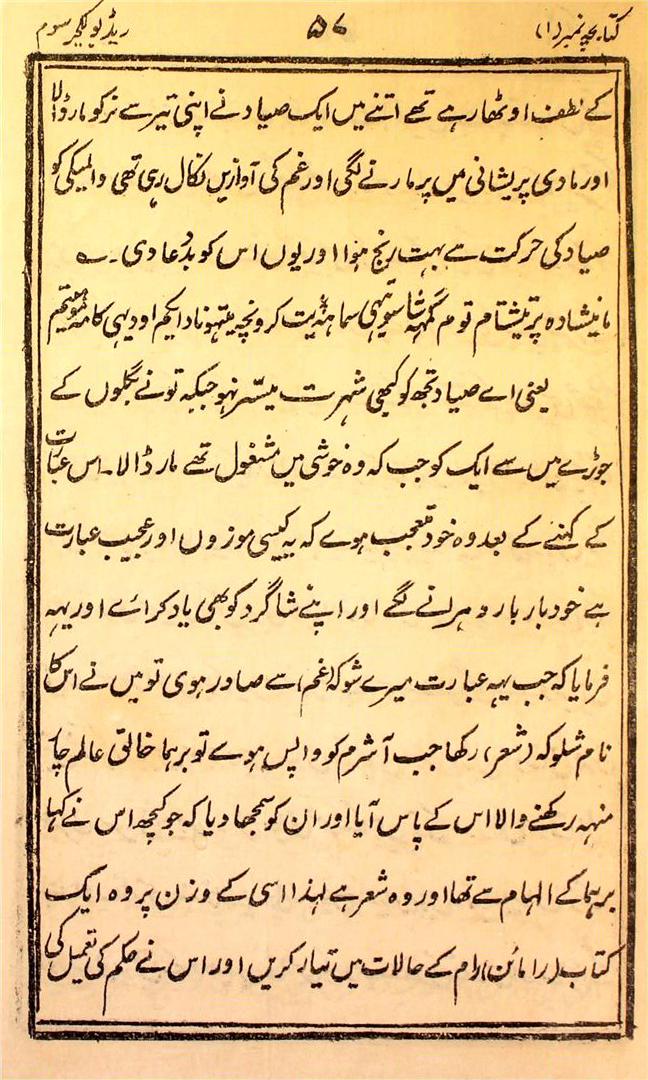 کتابچہ نمبر (۱) ۵۷ ریڈیو لکچر سوم
کے لطف اوٹھارہے تھے اتنے میں ایک صیاد نے اپنی تیر سے نر کو مار ڈالا
اور مادی پریشانی میں پر مارنے لگی اور غم کی آوازیں نکال رہی تھی والمیکی کو
صیاد کی حرکت سے بہت رنج ہوا اور یوں اس کو بددعا دی ۔ ؎
مانیشادہ پرتیشتام توم گمہہ شاسوتیہی سماہہ یت کرونچہ میتھونادایکم اودیہی کامہ موہیتم
یعنی اے صیاد تجھ کو کبھی شہرت میسّر نہو جبکہ تو نے بگلوں کے
جوڑے میں سے ایک کو جب کہ وہ خوشی میں مشغول تھے مار ڈالا۔ اس عبارت
کے کہنے کے بعد وہ خود متعجب ہوے کہ یہ کیسی موزوں اور عجیب عبارت
ہے خود بار بار دہرانے لگے اور اپنے شاگرد کو بھی یاد کرائے اور یہہ
فرمایا کہ جب یہہ عبارت میرے شوکہ (غم) سے صادر ہوی تو میں نے اس کا
نام شلوکہ (شعر) رکھا جب آشرم کو واپس ہوے تو برہما خالق عالم چار
منہہ رکھنے والا اس کے پاس آیا اور ان کو سمجھا دیا کہ جو کچھ اس نے کہا
برہما کے الہام سے تھا اور وہ شعر ہے لہذا اسی کے وزن پر وہ ایک
کتاب (رامائن) رام کے حالات میں تیار کریں اور اس نے حکم کی تعمیل کی